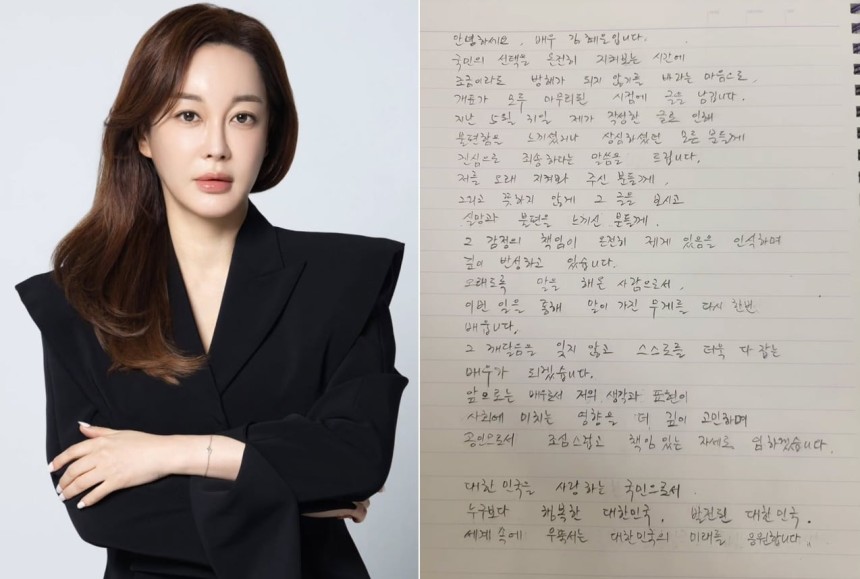 안녕하세요. 배우 김혜은입니다.
국민의 선택을 온전히 지켜보는 시간에
조금이라도 방해가 되지 않기를 바라는 마음으로,
개표가 모두 마무리된 시점에 글을 남깁니다.
지난 5월 31일 제가 작성한 글로 인해
불편함을 느끼셨거나 상심하셨던 모든 분들께
진심으로 죄송하다는 말씀을 드립니다.
저를 오래 지켜봐 주신 분들께,
그리고 뜻하지 않게 그 글을 보시고
실망과 불편을 느끼신 분들께,
그 감정의 책임이 온전히 제게 있음을 인식하며
깊이 반성하고 있습니다.
오래도록 말을 해온 사람으로서,
이번 일을 통해 말이 가진 무게를 다시 한번
배웁니다.
그 깨달음을 잊지 않고 스스로를 더욱 다 잡는
배우가 되겠습니다.
앞으로는 배우로서 저의 생각과 표현이
사회에 미치는 영향을 더 깊이 고민하며
공인으로서 조심스럽고 책임 있는 자세로 임하겠습니다.
대한민국을 사랑하는 국민으로서
누구보다 행복한 대한민국, 발전된 대한민국.
세계 속에 우뚝서는 대한민국의 미래를 응원합니다.